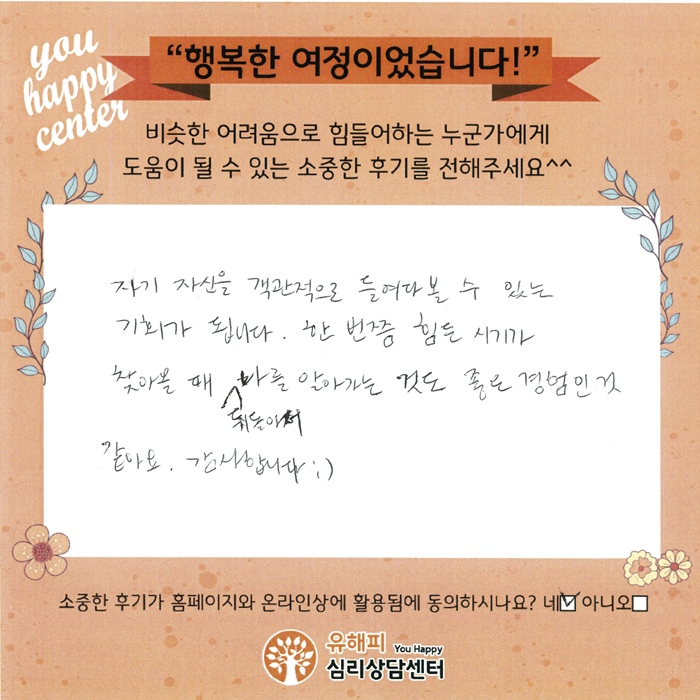 you
happy
center
“행복한 여정이었습니다!”
비슷한 어려움으로 힘들어하는 누군가에게
도움이 될 수 있는 소중한 후기를 전해주세요^^
자기 자신을 객관적으로 들여다볼 수 있는
기회가 됩니다. 한 번쯤 힘든 시기가
찾아올 때 나를 알아가는 것도 좋은 경험인 것
뒤돌아서
같아요. 감사합니다 :)
소중한 후기가 홈페이지와 온라인상에 활용됨에 동의하시나요? 네☑ 아니오☐
유해피 You Happy
심리상담센터